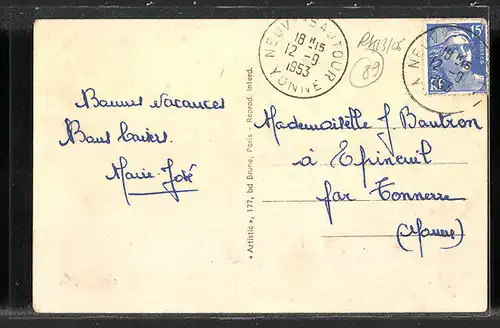 NEUVY-SAUTOUR
18 H 15
12 - 9
1953
YONNE
89
15
POSTES
RF
18 H 15
12 - 9
Bonnes vacances
Bons baisers.
Marie-José
Mademoiselle J. Boutron
à Epineuil
par Tonnerre
(Yonne)
« Artistic », 177, bd Brune, Paris - Reprod. Interd.